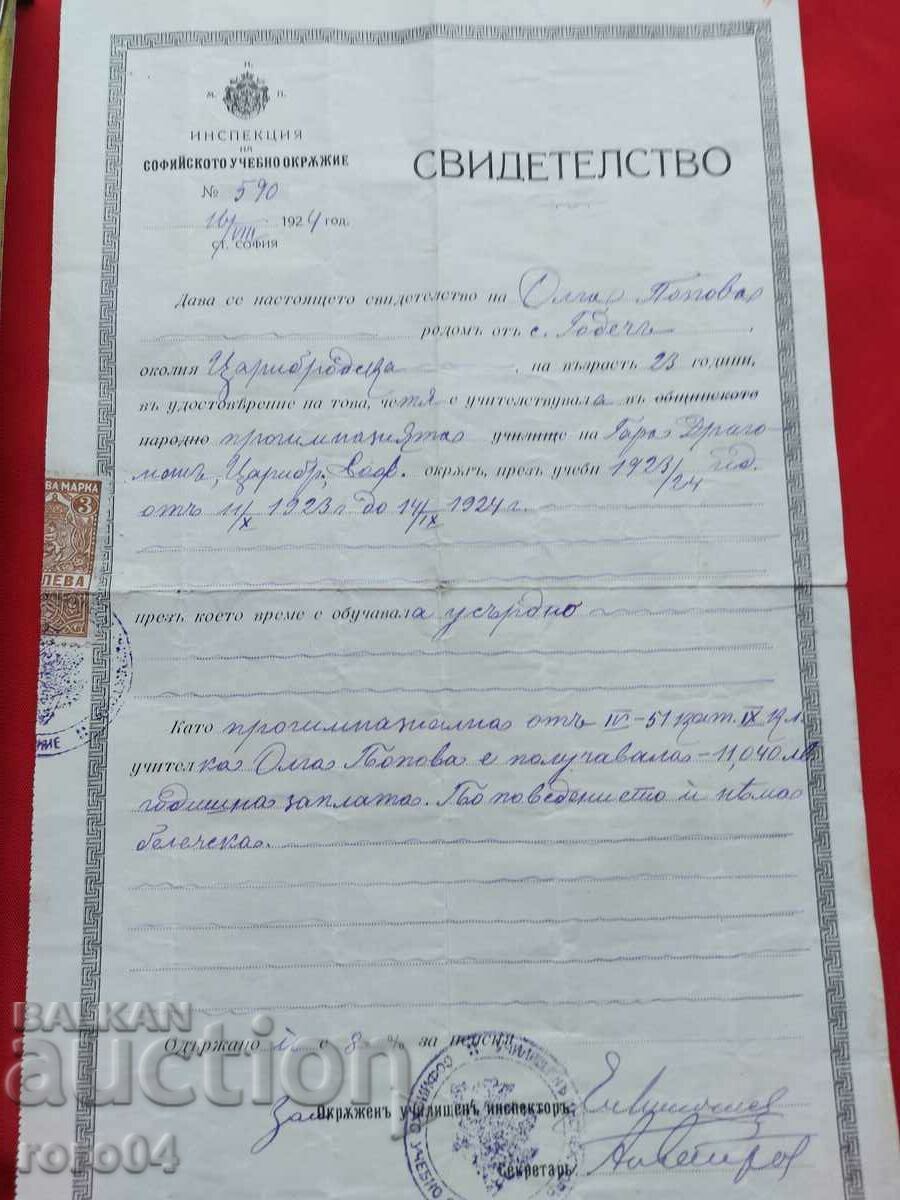 М. Н. П.
ИНСПЕКЦИЯ
НА
СОФИЙСКОТО УЧЕБНО ОКРѪЖИЕ
СВИДЕТЕЛСТВО
№ 590
16/VIII 1924 год.
гр. СОФИЯ
Дава се настоящето свидетелство на Олга Попова
родомъ отъ с. Годечъ
околия Царибродска на възрасть 23 години,
въ удостовѣрение на това, че тя е учителствувала въ общинското
народно прогимназията училище на Гара Драго-
манъ, Царибр. окрѫгъ, презъ учебн 1923/24 год.
отъ 11/X 1923 г до 14/IX 1924 г.
презъ което време е обучавала усърдно
Като прогимназиална отъ IV-51 кат. IX кл.
учителка Олга Попова е получавала -11,040 лв
годишна заплата. По поведението ѝ нѣма
бележка.
Одържано ѝ е 8 % за пенсия
Окрѫженъ училищенъ инспекторъ:
Секретарь:
ВА МАРКА
3
ЛЕВА
BALKAN
auction
roro04